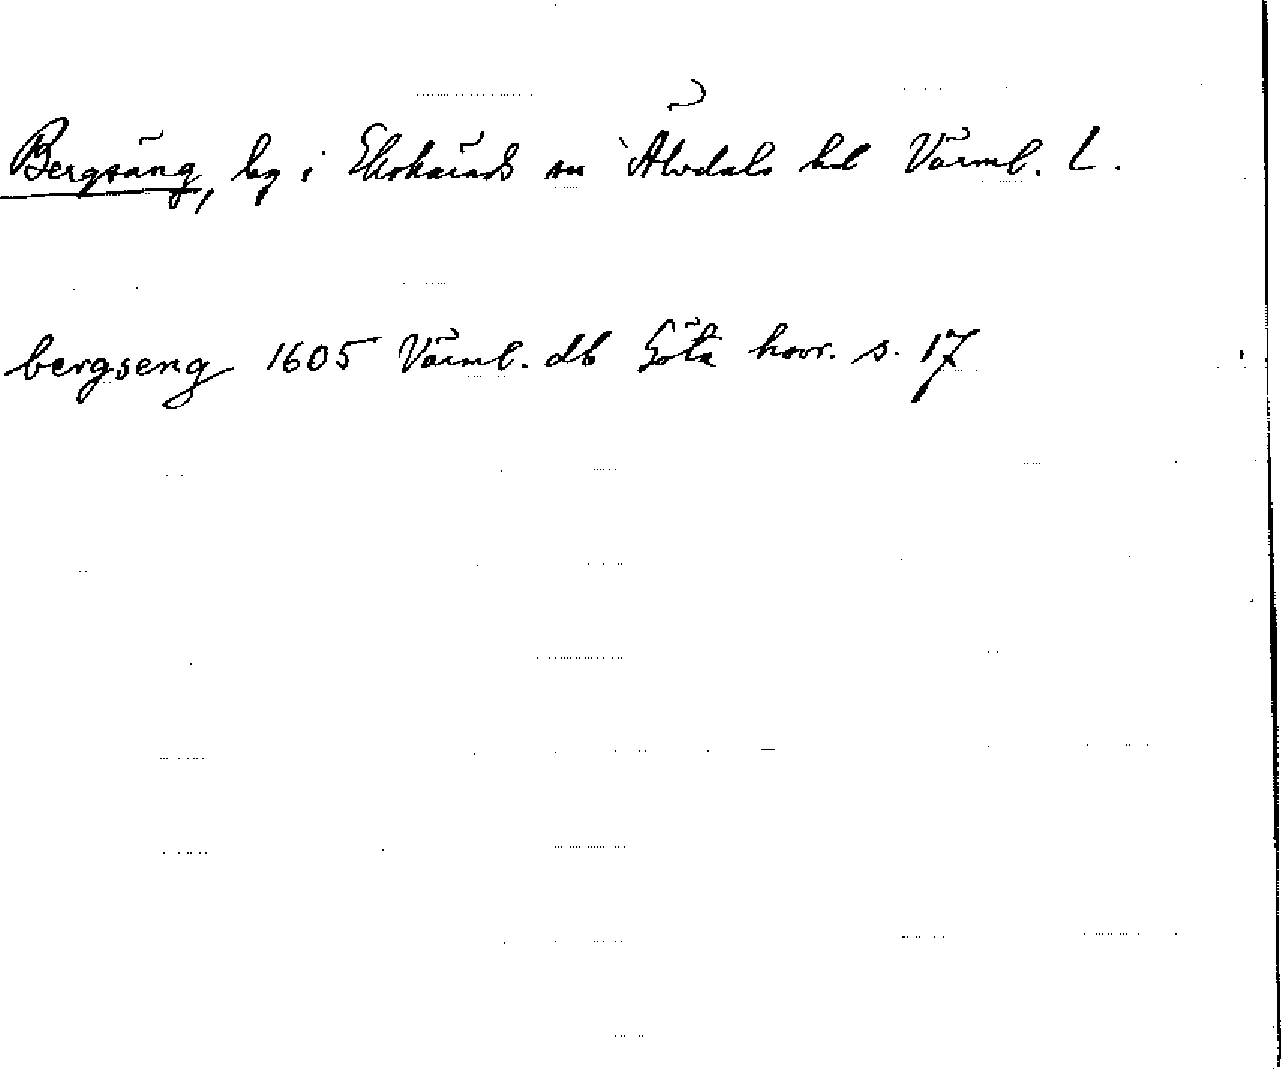 Bergsäng, by i Ekshärads sn Älvdals hd Värml. l.
bergseng 1605 Värml. db Göta hovr. s. 17